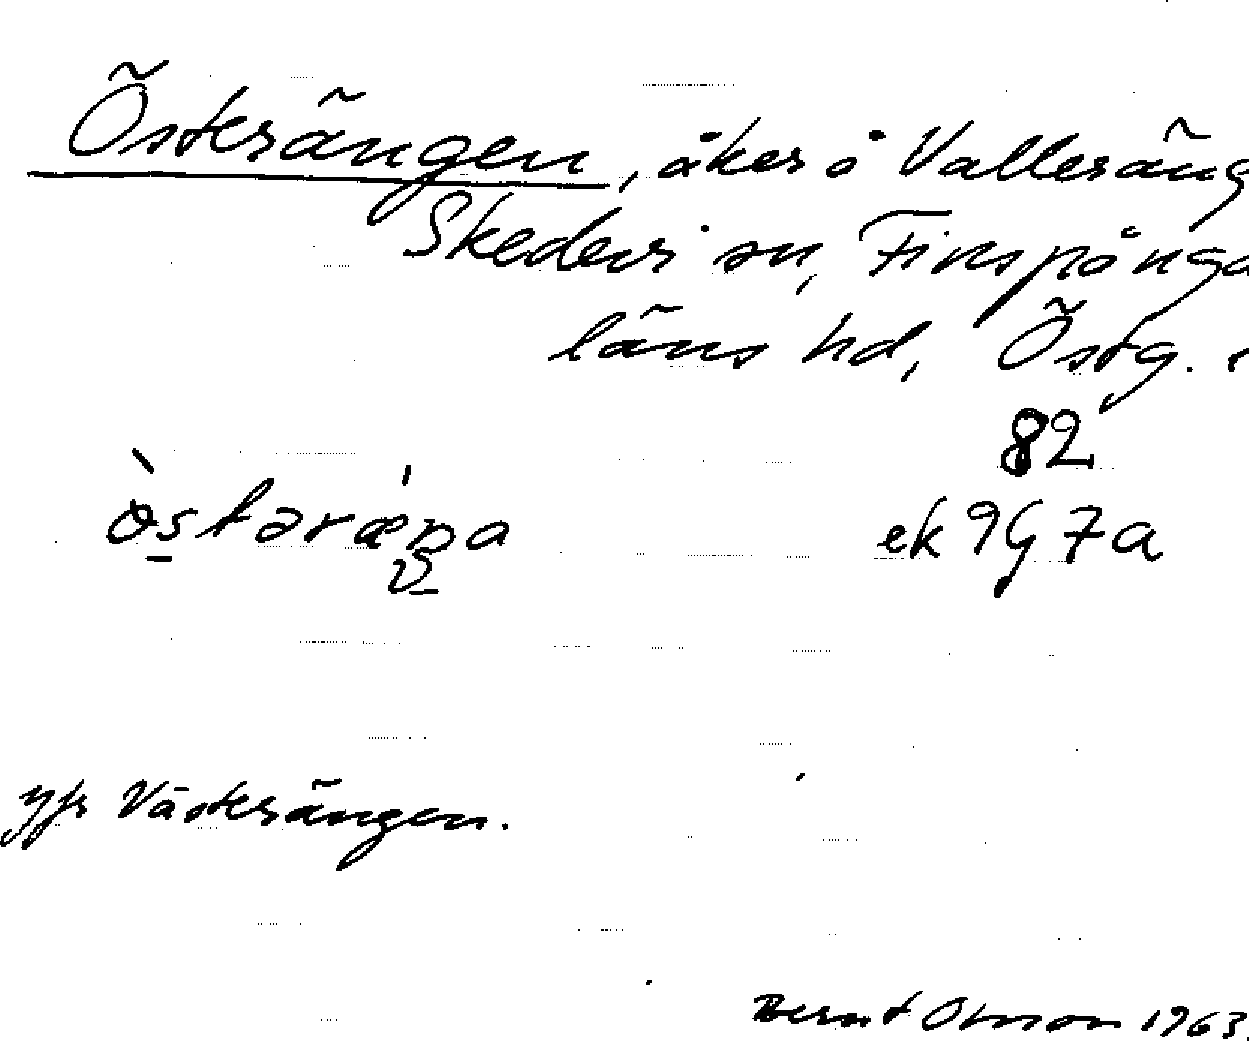 Österängen, åker å Valleräng
Skedevi sn, Finspånga
läns hd, Östg.
82
ek 9G7a
jfr Västerängen.
Bernt Olsson 1963.